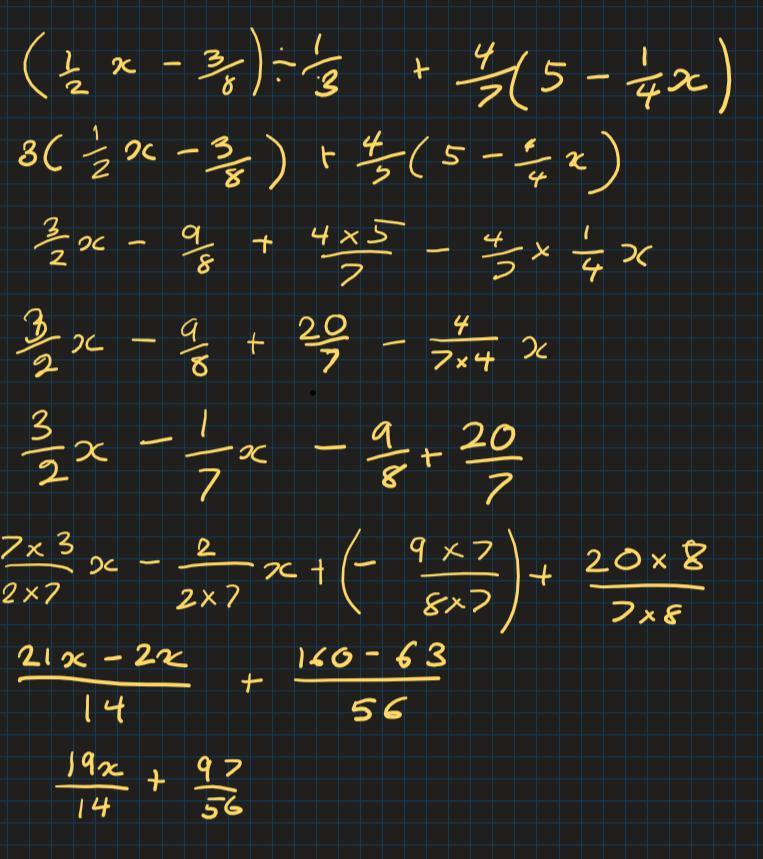 (1/2 x - 3/8) ÷ 1/3 + 4/7 (5 - 1/4 x)
3(1/2 x - 3/8) + 4/7 (5 - 1/4 x)
3/2 x - 9/8 + (4×5)/7 - 4/7 × 1/4 x
3/2 x - 9/8 + 20/7 - 4/(7×4) x
3/2 x - 1/7 x - 9/8 + 20/7
(7×3)/(2×7) x - 2/(2×7) x + (- (9×7)/(8×7)) + (20×8)/(7×8)
(21x - 2x)/14 + (160 - 63)/56
19x/14 + 97/56